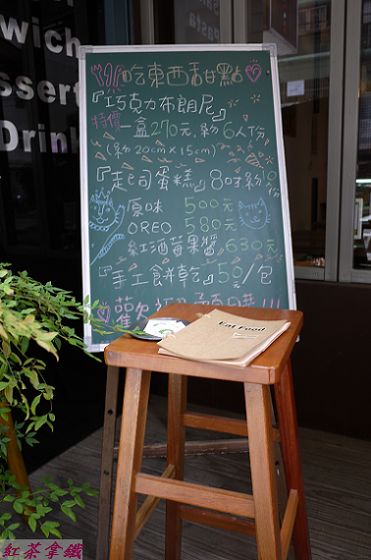 wich
Dessert
Drink
Pasta
吃東西甜點
『巧克力布朗尼』
特價一盒270元, 約6人份
(約 20cm × 15cm)
『起司蛋糕』8吋約10份
原味 500元
OREO 580元
紅酒莓果醬 630元
『手工餅乾』50/包
歡迎
!!!
Eat Food
紅茶拿鐵